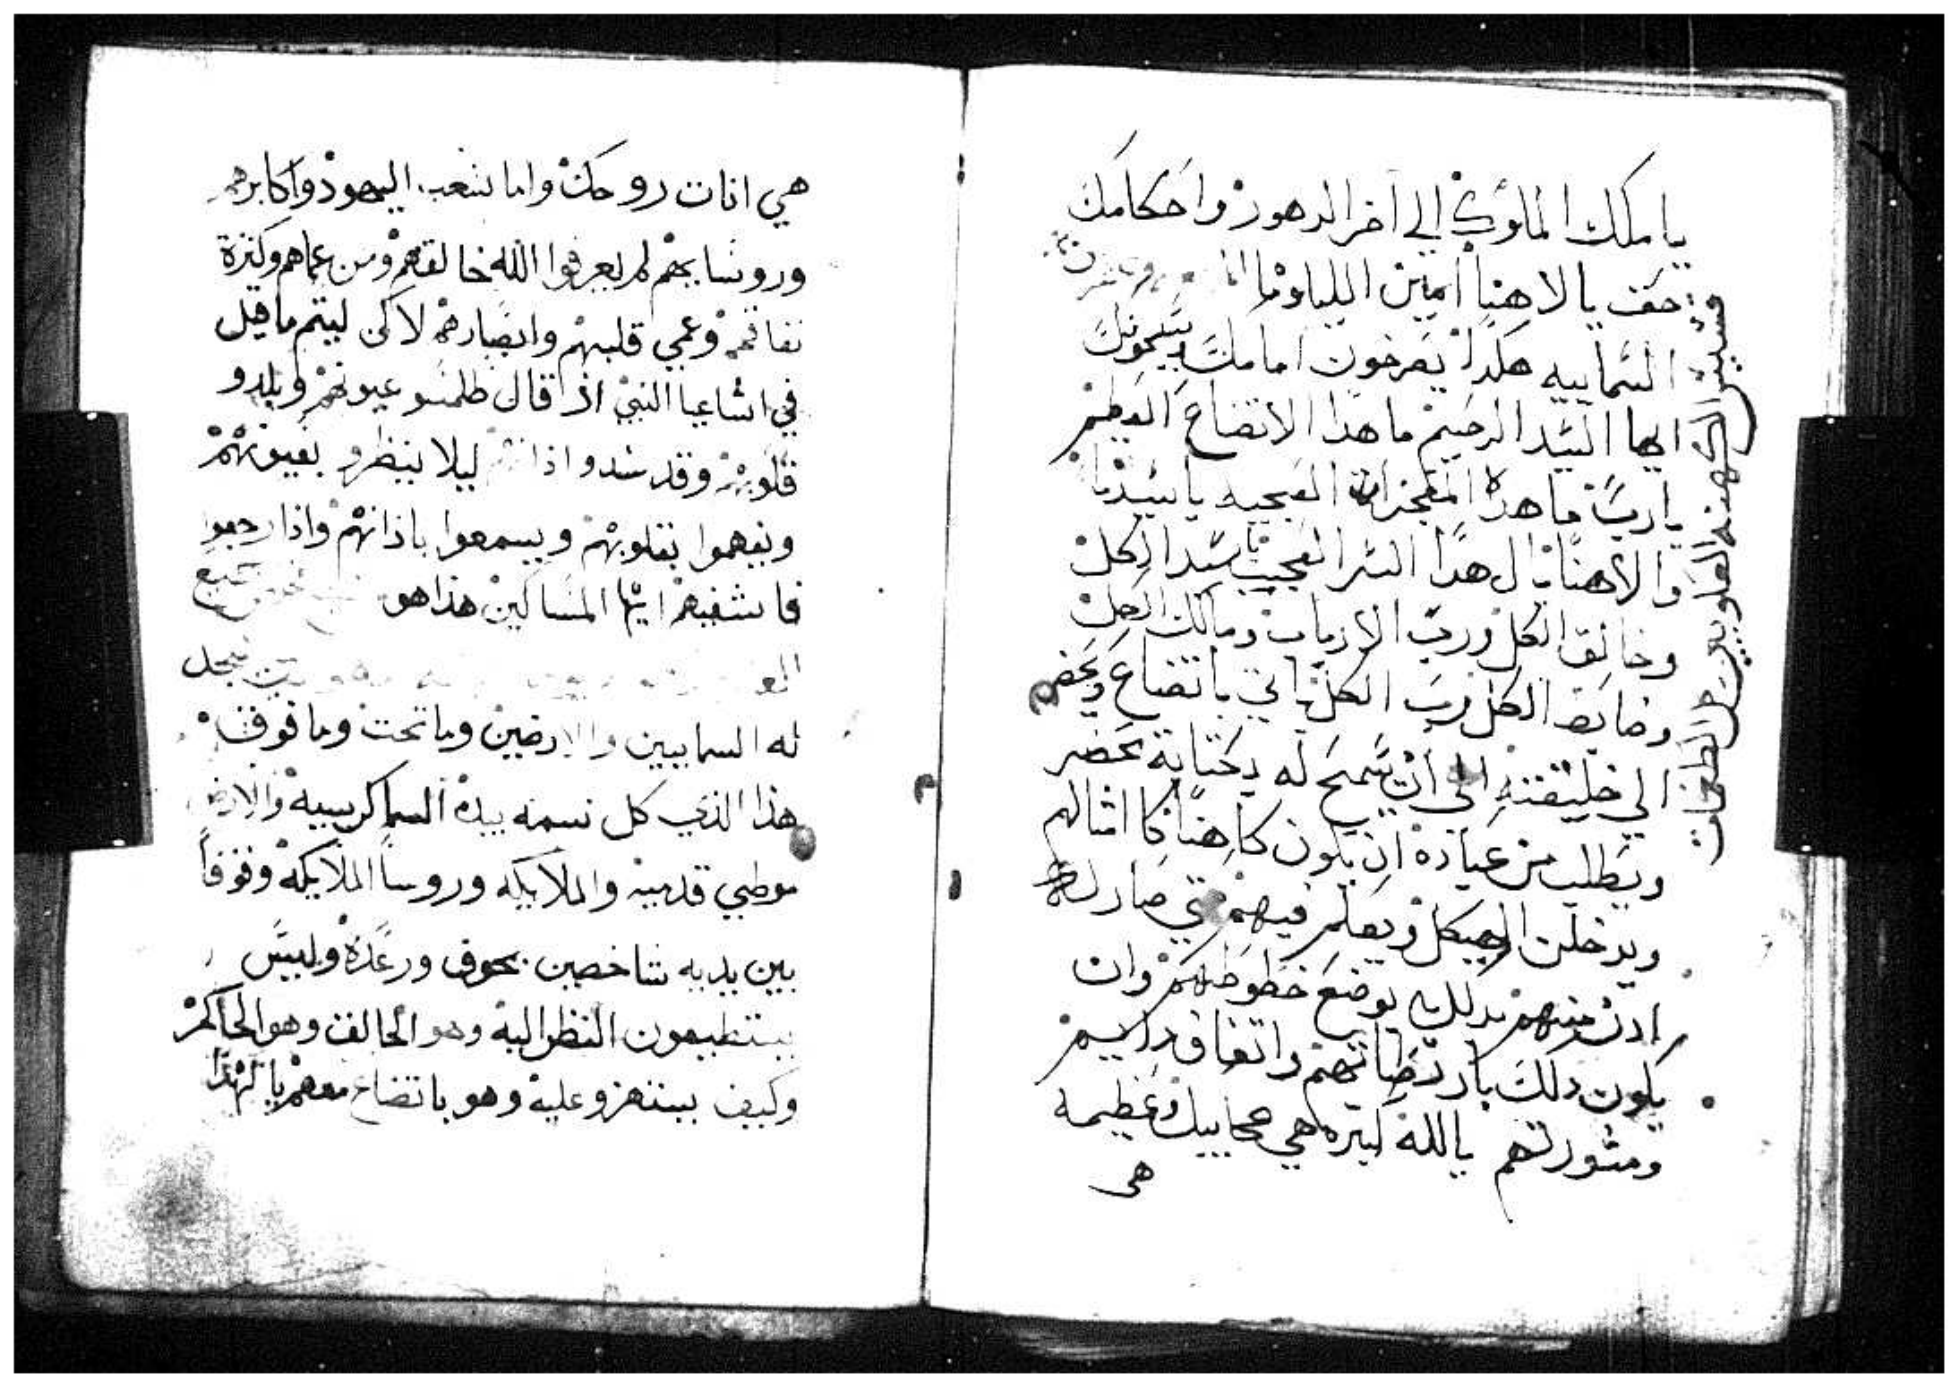 يا ملك الملوك الي اخر الدهور واحكامك
حق يا الاهنا امين الليلويا
السماييه هكدا يصرخون امامك يسبحونك
ايها السيد الرحيم ما هدا الاتضاع العظيم
يارب ما هده المعجزات العجيبه يا سيدنا
والاهنا يال هدا السر العجيب يا سيد الكل
وخالق الكل ورب الارباب ومالك الكل
وضابط الكل ورب الكل ياتي باتضاع ويخضع
الي خليقته الي ان يسمح له بكتابة محضر
ويطلب من عباده ان يكون كاهنا كامثالهم
ويدخل الهيكل ويعلم فيهم صار له
ادن منهم بدلك بوضع خطوطهم وان
يكون دلك بارتضاتهم واتفاق راييهم
ومشورتهم يا الله كتيره هي عجاييبك وعظيمه
هي
قسيس الكهنه العلويين الطغمات
هي انات روحك واما شعب اليهود واكابرهم
وروسايهم لم يعرفوا الله خالقهم ومن عماهم وكثرة
نفاقهم وعمي قلبهم وابصارهم لاكن ليتم ما قيل
في اشاعيا النبي اذ قال طلمسو عيونهم وبلدو
قلوبهم وقد سدو اذانهم ليلا ينظرو بعيونهم
ويفهموا بقلوبهم ويسمعوا باذانهم واذا رجعوا
فاشفيهم ايها المساكين هذا هو جميع
تسجد
له السماييين والارضين وما تحت وما فوق
هذا الذي كل نسمه بيده السما كرسيه والارض
موطي قدميه والملايكه وروسا الملايكه وقوفا
بين يديه شاخصين بخوف ورعدة وليس
يستطيعون النظر اليه وهو الخالق وهو الحاكم
وكيف يستهزو عليه وهو باتضاع معهم يا لهدا